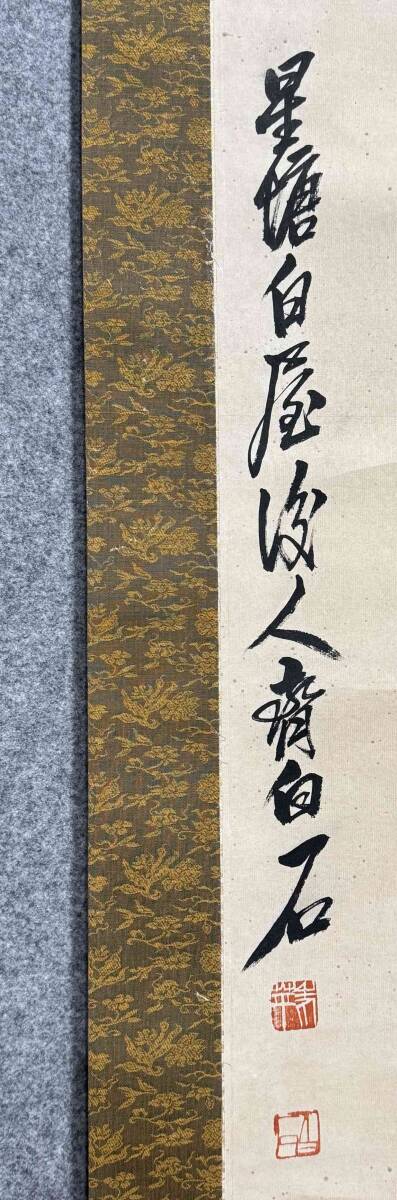 星塘白屋後人齊白石